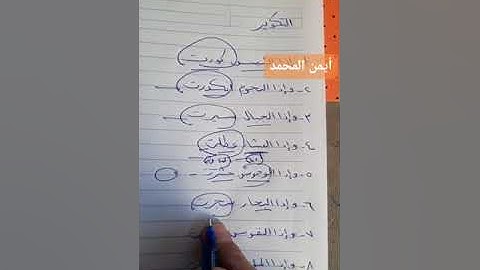 التكوير
أيمن المحمد
كورت
٢- وإذا النجوم انكدرت
٣- وإذا الجبال سيرت
٤- وإذا العشار عطلت
٥- وإذا الوحوش حشرت
٦- وإذا البحار سجرت
٧- وإذا النفوس
٨- وإذا